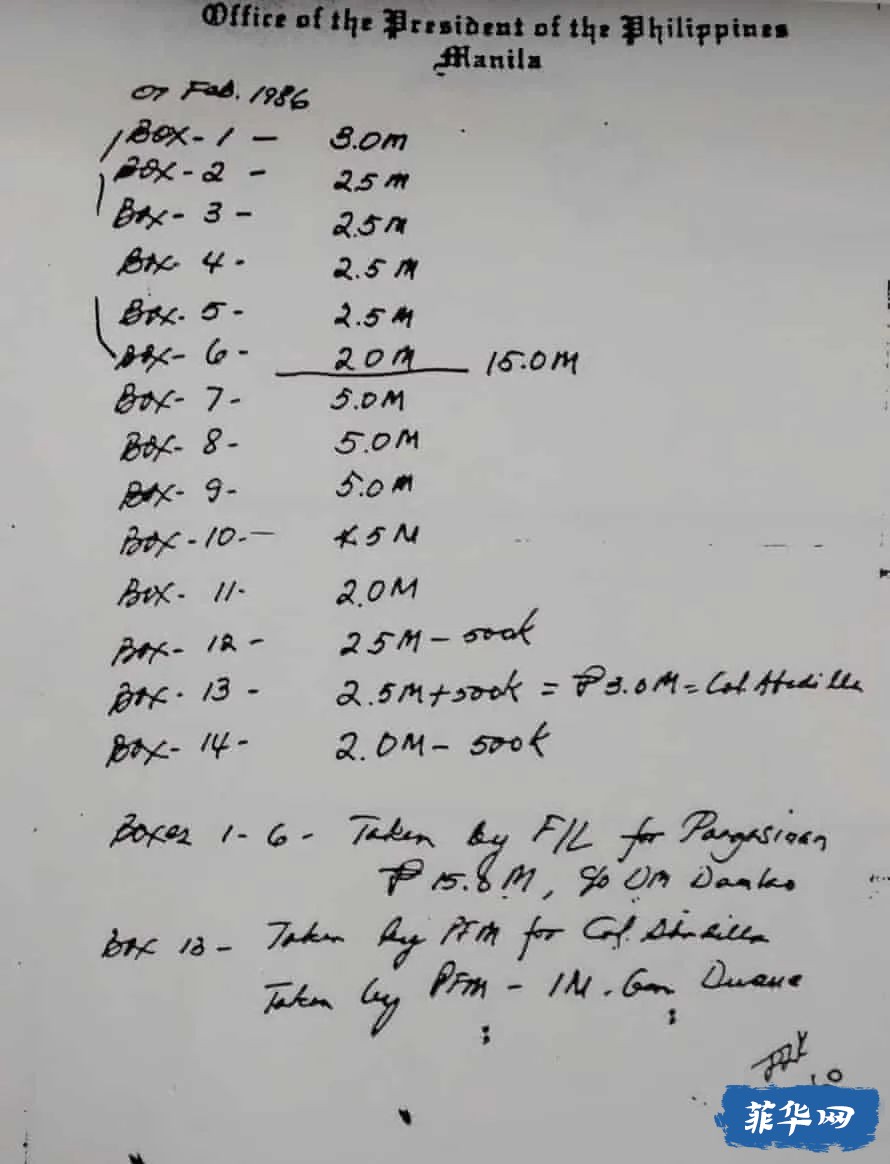 Office of the President of the Philippines
Manila
07 Feb. 1986
Box - 1 - 3.0M
Box - 2 - 25M
Box - 3 - 2.5M
Box 4 - 2.5M
Box - 5 - 2.5M
Box - 6 - 20M 15.0M
Box - 7 - 5.0M
Box - 8 - 5.0M
Box - 9 - 5.0M
Box - 10 - 5M
Box - 11 - 2.0M
Box - 12 - 25M - 500k
Box - 13 - 2.5M + 500k = ₱3.0M = Col.
Box - 14 - 2.0M - 500k
Boxes 1 - 6 - Taken by F/L for Pangasinan
₱ 15.0M, c/o
Box 13 - Taken by PFM for Col.
Taken by PFM - 1M. Gen
菲华网